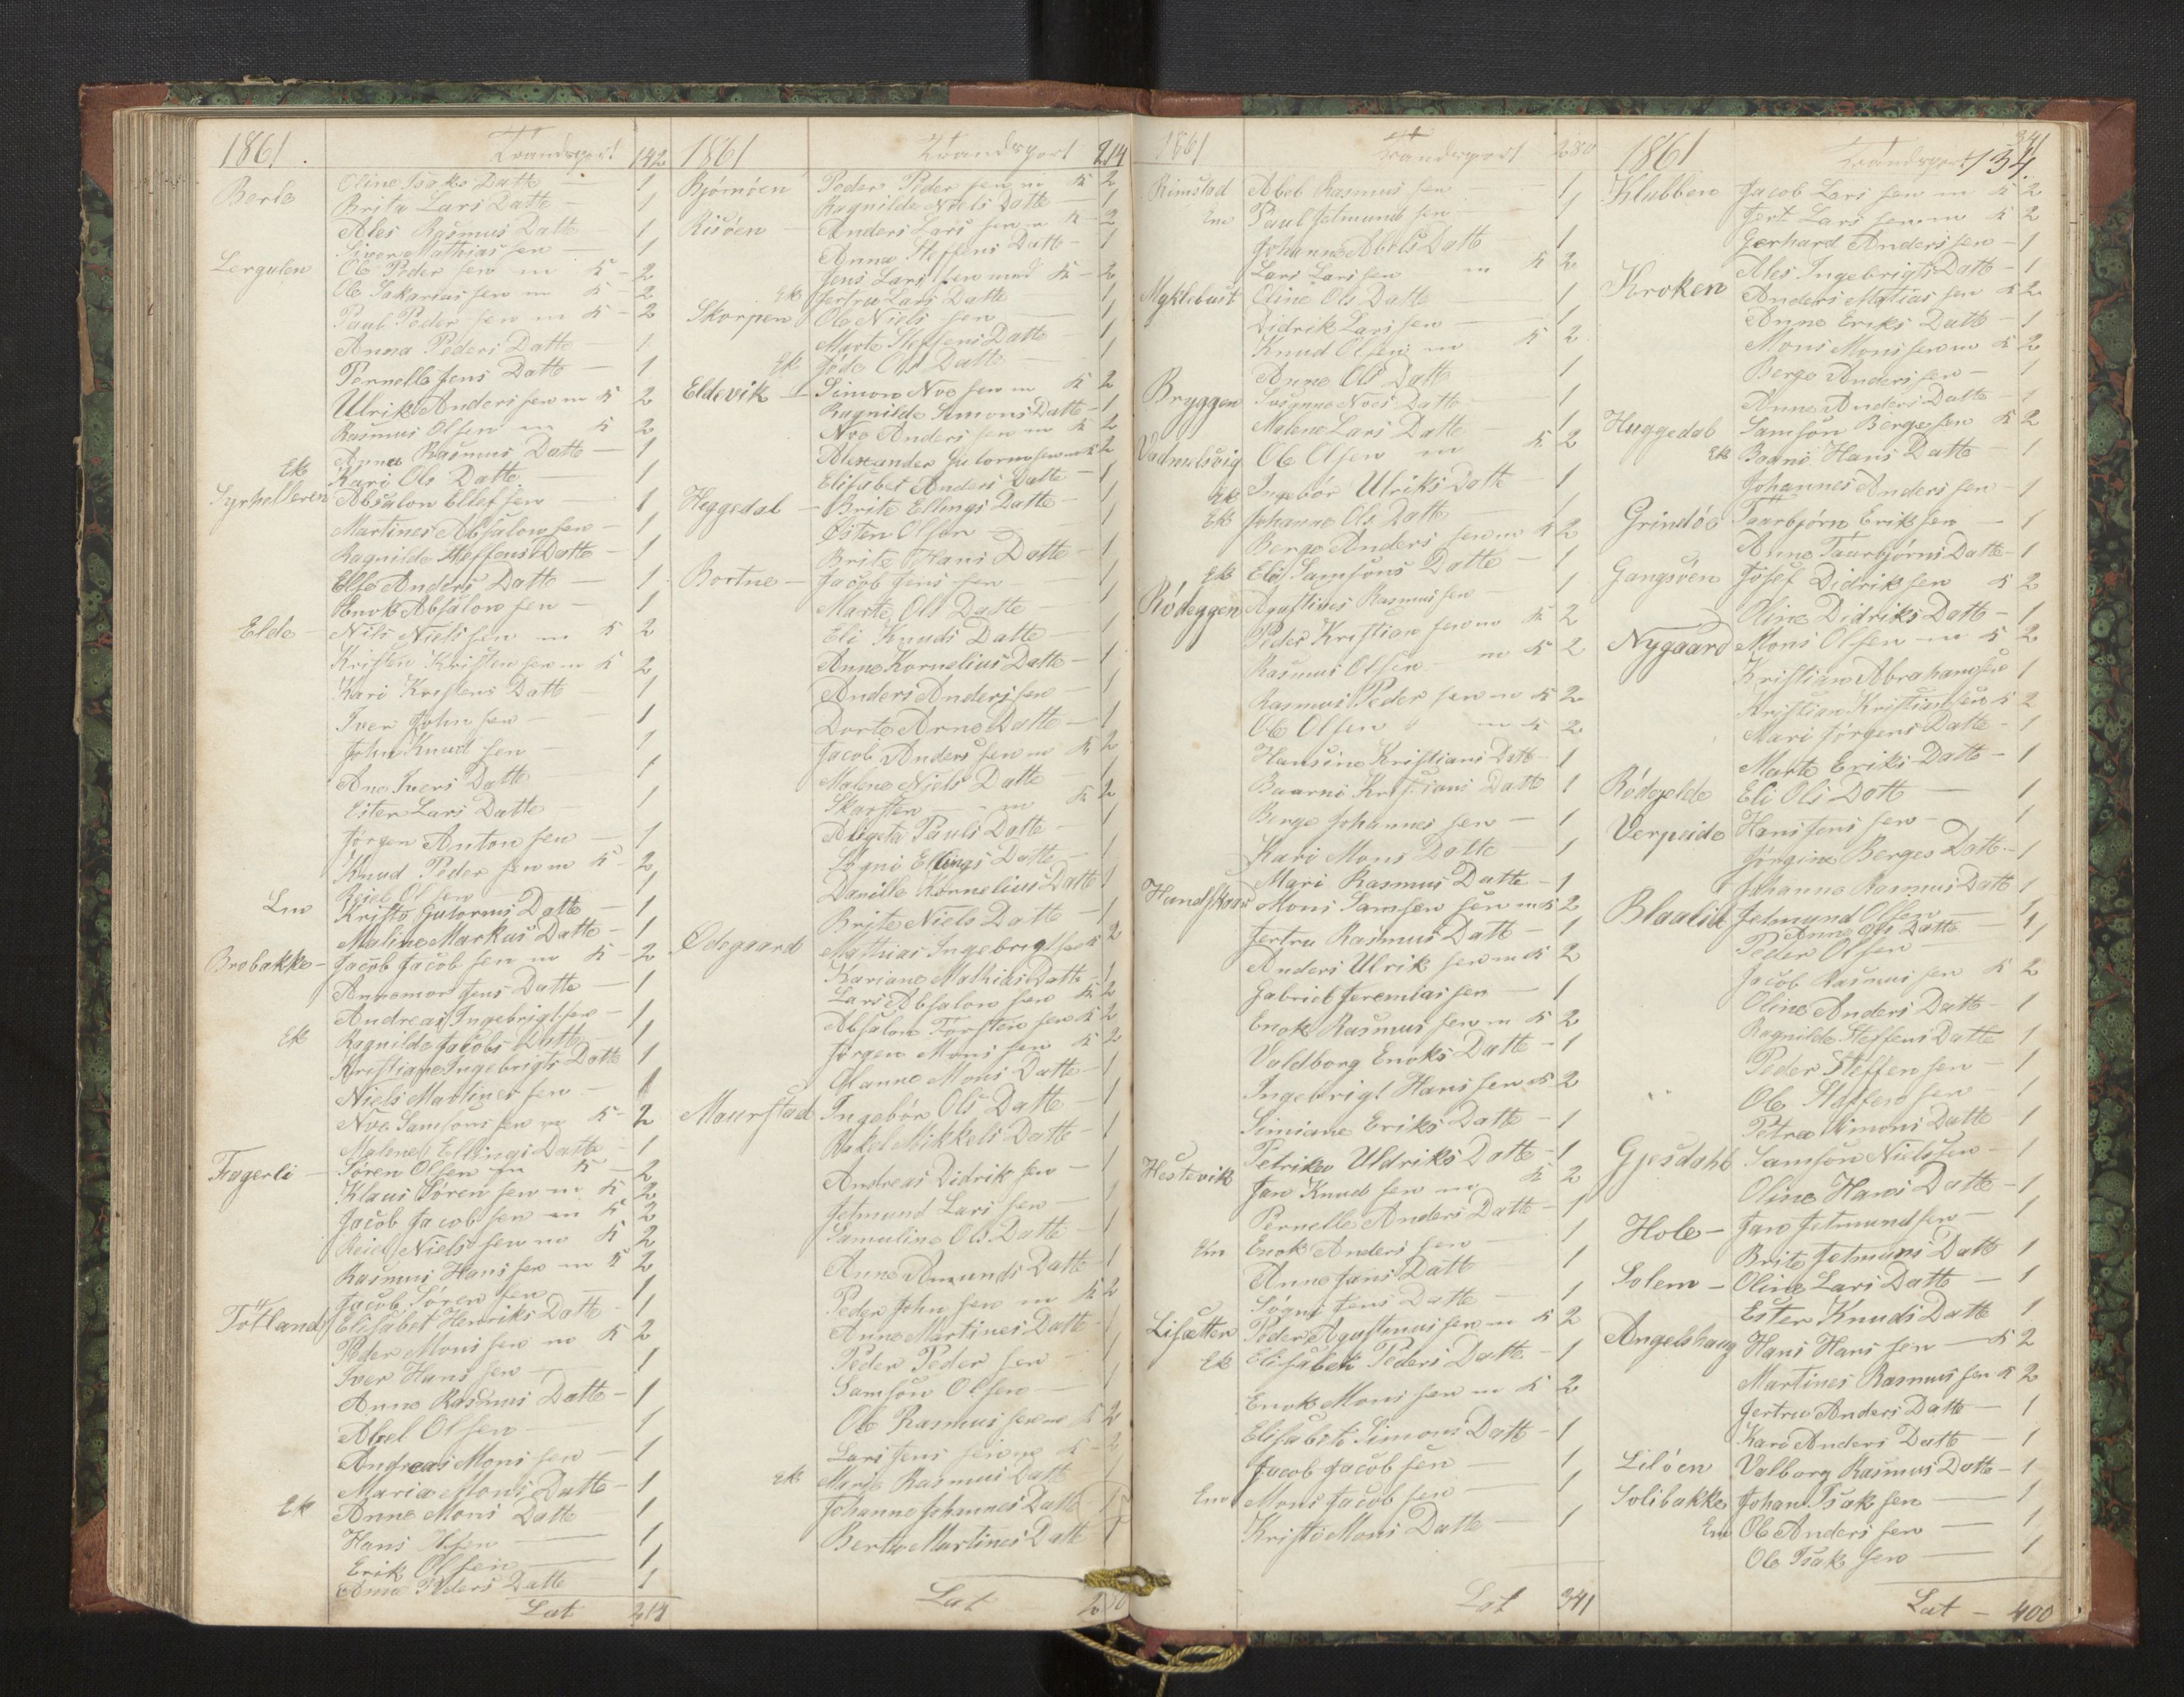 1861 . Trandsport 142
Berle Oline Isaks Datte — 1
Brita Lars Datte — 1
Ales Rasmus Datte 1
Siver Mathias sen — 1
Lergulen Ole Peder sen m K - 2
Ole Sakarias sen m K - 2
Paul Peder sen m K - 2
Anna Peders Datte — 1
Pernelle Jens Datte — 1
Ulrik Anders sen m K 2
Rasmus Olsen m K 2
Anna Rasmus Datte — 1
Ek Kari Ols Datte 1
Absalon Ellef sen — 1
Martines Absalon sen — 1
Ragnilde Steffens Datte — 1
Else Anders Datte — 1
Enok Absalon sen — 1
Elde — Nils Niels sen m K 2
Kristen Kristen sen m K 2
Kari Kristens Datt — 1
Iver John sen — 1
John Knud sen — 1
Ane Ivers Datte 1
Ester Lars Datte 1
Jørgen Anton sen — 1
Knud Peder sen m K 2
Reiel Olsen 1
Em Kristi Gutorms Datte — 1
Maline Markus Datte — 1
Brobakke — Jacob Jacob sen m K - 2
Annamor Jens Datte — 1
Andreas Ingebrigt sen — 1
Ek Ragnilde Jacobs Datte 1
Kristiane Ingebrigts Datte 1
Niels Martines sen — 1
Noe Samsons sen m K - 2
Malene Ellings Datte — 1
Fagerli — Søren Olsen m K — 2
Klaus Søren sen m K 2
Jacob Jacob sen m K 2
Reiel Niels sen m K 2
Rasmus Hans sen m K 2
Jacob Søren sen — 1
Totland Elisabet Henriks Datte — 1
Peder Mons sen m K 2
Iver Hans sen — 1
Anne Rasmus Datte — 1
Abel Olsen — 1
Andreas Mons sen — 1
Maria Mons Datte — 1
Ek Anne Mons Datte 1
Hans Olsen — 1
Erik Olsen — 1
Anne Peders Datte 1
Lat 214
1861 Trandsport 214
Bjørnøen Peder Peder sen m K 2
Ragnilde Niels Datte — 1
Risøen — Anders Lars sen m K - 2
Anne Steffens Datte — 1
Jens Lars sen med K - 2
Ek Jertru Lars Datte 1
Skorpen Ole Niels sen — 1
Marte Steffens Datte — 1
Ek Ols Datte — 1
Eldevik — Simon Noe sen m K 2
Ragnilde Simons Datte — 1
Noe Anders sen m K 2
Alexander Gutorm sen m K 2
Elisabet Anders Datte 1
Heggedal — Brite Ellings Datte — 1
Østen Olsen — 1
Brite Hans Datte — 1
Bortne — Jacob Jens sen — 1
Marte Ols Datte 1
Eli Knuds Datte — 1
Anne Kornelius Datte — 1
Anders Anders sen — 1
Dorte Arne Datte — 1
Jacob Anders sen m K 2
Malene Niels Datte 1
Skarsten — m K 2
Pauls Datte — 1
Ellings Datte — 1
Danille Kornelius Datte 1
Brite Niels Datte — 1
Ødegaard Mathias Ingebrigt sen K 2
Kariane Mathias Datte 1
Lars Absalon sen K 2
Absalon Torsten sen K 2
Jørgen Mons sen K 2
Mons Datte — 1
Maurstad Ingebør Ols Datte — 1
Rakel Mikkels Datte — 1
Andreas Didrik sen — 1
Jetmund Lars sen — 1
Samuline Ols Datte 1
Anne Amunds Datte 1
Peder John sen m K 2
Anne Martines Datte 1
Peder Peder sen — 1
Samson Olsen — 1
Ole Rasmus sen m K 2
Lars Jens sen m K - 2
Ek Marie Rasmus Datte 1
Johanne Johannes Datte 1
Berte Martines Datte 1
Lat
1861 Trandsport 280
Rimstad Abel Rasmus sen — 1
Em Paul Jetmund sen — 1
Johanne Abels Datte 1
Lars Lars sen m K 2
Myklebust Oline Ols Datte — 1
Didrik Lars sen — 1
Knud Olsen m K 2
Anne Ols Datte 1
Bryggen Susanne Noes Datte — 1
Malene Lars Datte — 1
Vadmelsvig Ole Olsen m K 2
Ek Ingebør Ulriks Datte — 1
Ek Johanne Ols Datte — 1
Berge Anders sen m K 2
Ek Eli Samsons Datte — 1
Rødeggen Agustines Rasmus sen — 1
Peder Kristian sen m K 2
Rasmus Olsen m K 2
Rasmus Peder sen m K 2
Ole Olsen m K 2
Hansine Kristians Datte 1
Kristians Datte 1
Berge Johannes sen — 1
Kari Mons Datte — 1
Mari Rasmus Datte — 1
Mons Samson sen m K 2
Jertru Rasmus Datte — 1
Anders Ulrik sen m K 2
Gabriel Jeremias sen — 1
Enok Rasmus sen m K 2
Valdborg Enoks Datte — 1
Ingebrigt Hans sen K 2
Simiane Eriks Datte — 1
Petrikes Uldriks Datte — 1
Hestevik Jan Knud sen m K 2
Pernelle Anders Datte — 1
Em Enok Anders sen — 1
Anne Jans Datte 1
Søgni Jens Datte — 1
Lisætter Peder Agustinus sen m K 2
Ek Elisabet Peders Datte — 1
Enok Mons sen m K 2
Elisabet Simons Datte — 1
Jacob Jacob sen — 1
Em Mons Jacob sen — 1
Kristi Mons Datte — 1
Lat 341
1861 Trandsport 341
Klubben Jacob Lars sen m K 2
Jert Lars sen m K 2
Gerhard Anders sen — 1
Ales Ingebrigts Datte — 1
Kroken Anders Matias sen K 2
Anne Eriks Datte — 1
Mons Mons sen m K 2
Berge Anders sen — 1
Anne Anders Datte — 1
Huggedal Samson Berge sen K 2
Ek Hans Datte — 1
Johannes Anders sen — 1
Grindøe Taarbjørn Erik sen — 1
Anne Taarbjørns Datte — 1
Gangsøen Josef Didrik sen K 2
Oline Didriks Datte — 1
Nygaard Mons Olsen m K 2
Kristian Abrahamsen 1
Kristian Kristian sen K 2
Mari Jørgens Datte — 1
Marte Eriks Datte — 1
Eli Ols Datt — 1
Verpeide Hans Jens sen — 1
Jørgine Berges Datte — 1
Johanne Rasmus Datte 1
Blaalid Jetmund Olsen — 1
Anne Ols Datte — 1
Peder Olsen 1
Jacob Rasmus sen K 2
Oline Anders Datte — 1
Ragnilde Steffens Datte 1
Peder Steffen sen — 1
Ole Steffen sen — 1
Petra Simons Datte 1
Gjesdahl Samson Niels sen — 1
Oline Hans Datte — 1
Hole — Jan Jetmund sen — 1
Brite Jetmuns Datte 1
Solem — Oline Lars Datte — 1
Ester Knuds Datte 1
Angelshaug Hans Hans sen — K 2
Martines Rasmus sen K 2
Jertru Anders Datte — 1
Kari Anders Datte — 1
Liløen Valborg Rasmus Datte — 1
Solibakke Johan Isak sen — 1
Em Ole Anders sen — 1
Ole Isak sen — 1
Lat — 400